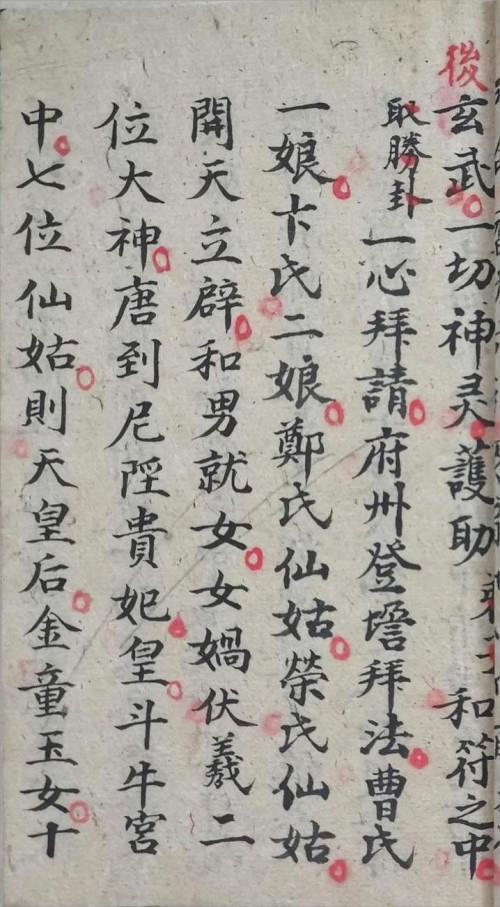 後玄武一切神灵護助弟子和符之中
取勝卦一心拜請府州登壇拜法曹氏
一娘卞氏二娘鄭氏仙姑榮氏仙姑
開天立辟和男就女女媧伏羲二
位大神唐到尼陞貴妃皇斗牛宮
中七位仙姑則天皇后金童玉女十